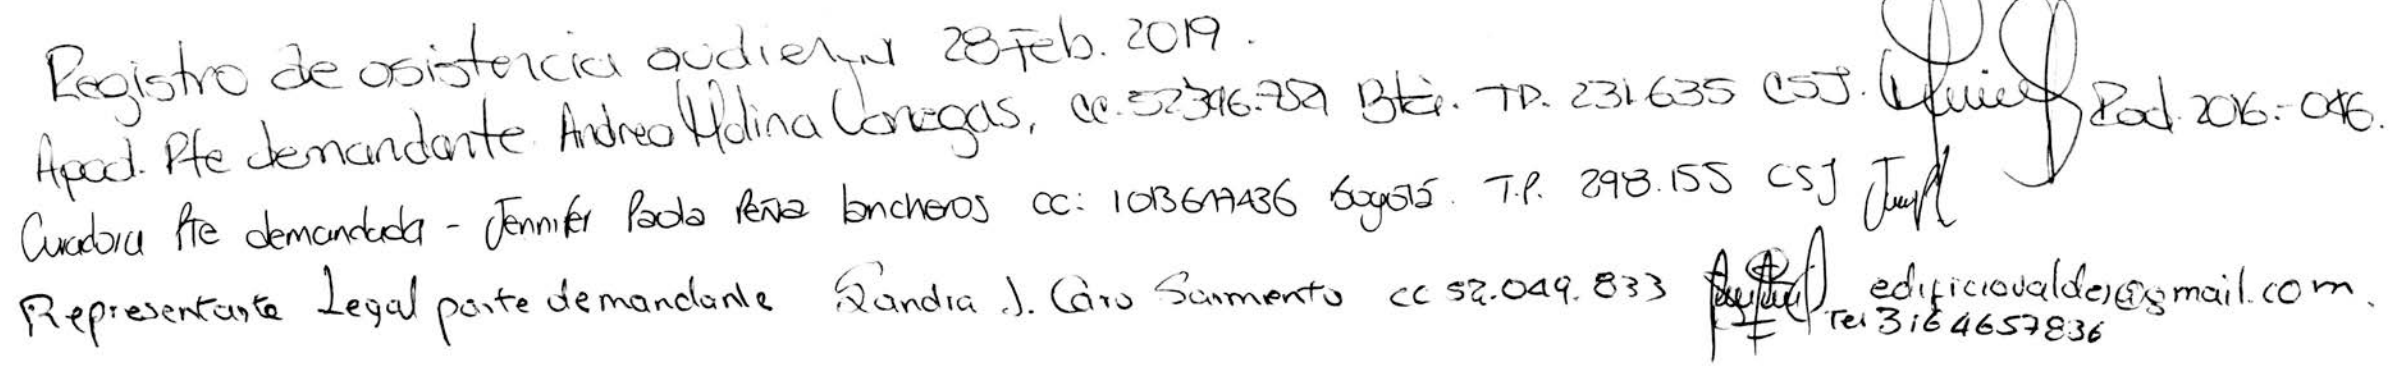 Registro de asistencia audiencia 28 Feb. 2019.
Apod. Pte demandante Andrea Molina Vanegas, cc. TP. 231.635 CSJ. Rad. 2016-046.
Curadora Pte demandada - Jennifer Paola Peña Loncheros cc: Bogotá. T.P. 298.155 CSJ
Representante Legal parte demandante Sandra J. Caro Sarmento cc 52.049.833 edificiovaldes@gmail.com.
Tel 3164657836